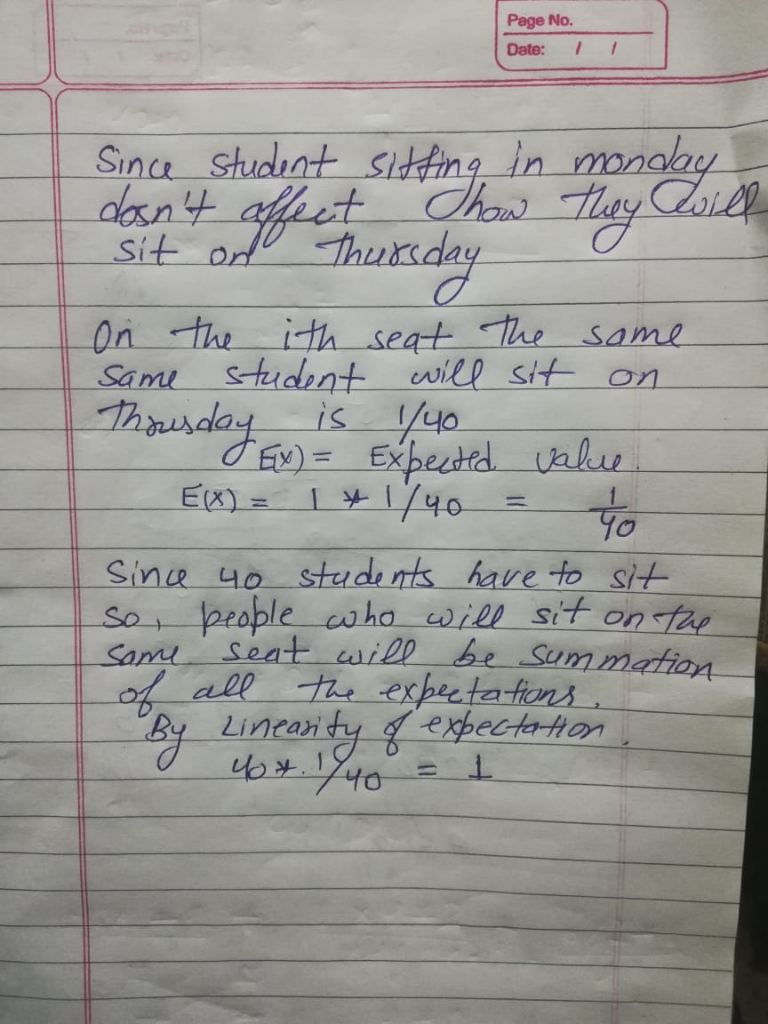 Page No.
Date: / /
Since student sitting in monday
dosn't affect how they will
sit on Thursday
On the ith seat the same
same student will sit on
Thrusday is 1/40
E(x) = Expected value.
E(x) = 1 * 1/40 = 1/40
Since 40 students have to sit
so, people who will sit on the
same seat will be summation
of all the expectations.
By Linearity of expectation.
40 *. 1/40 = 1